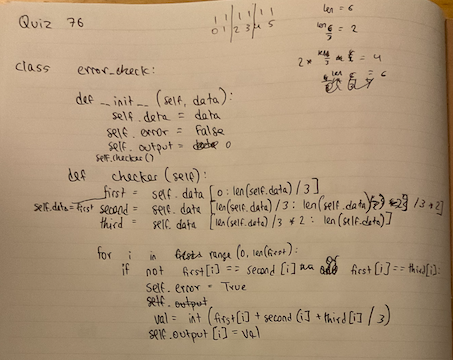 Quiz 76
1 1 | 1 1 | 1 1
0 1 | 2 3 | 4 5
len = 6
= 2
= 4
= 6
class error_check:
def __init__ (self, data):
self.data = data
self.error = False
self.output = 0
self.checker()
def checker (self):
first = self.data [0 : len(self.data) / 3]
self.data = first
second = self.data [len(self.data) / 3 : len(self.data) / 3 * 2]
third = self.data [len(self.data) / 3 * 2 : len(self.data)]
for i in range (0, len(first):
if not first[i] == second [i] or first[i] == third[i]:
self.error = True
self.output
val = int (first[i] + second (i] + third [i] / 3)
self.output [i] = val